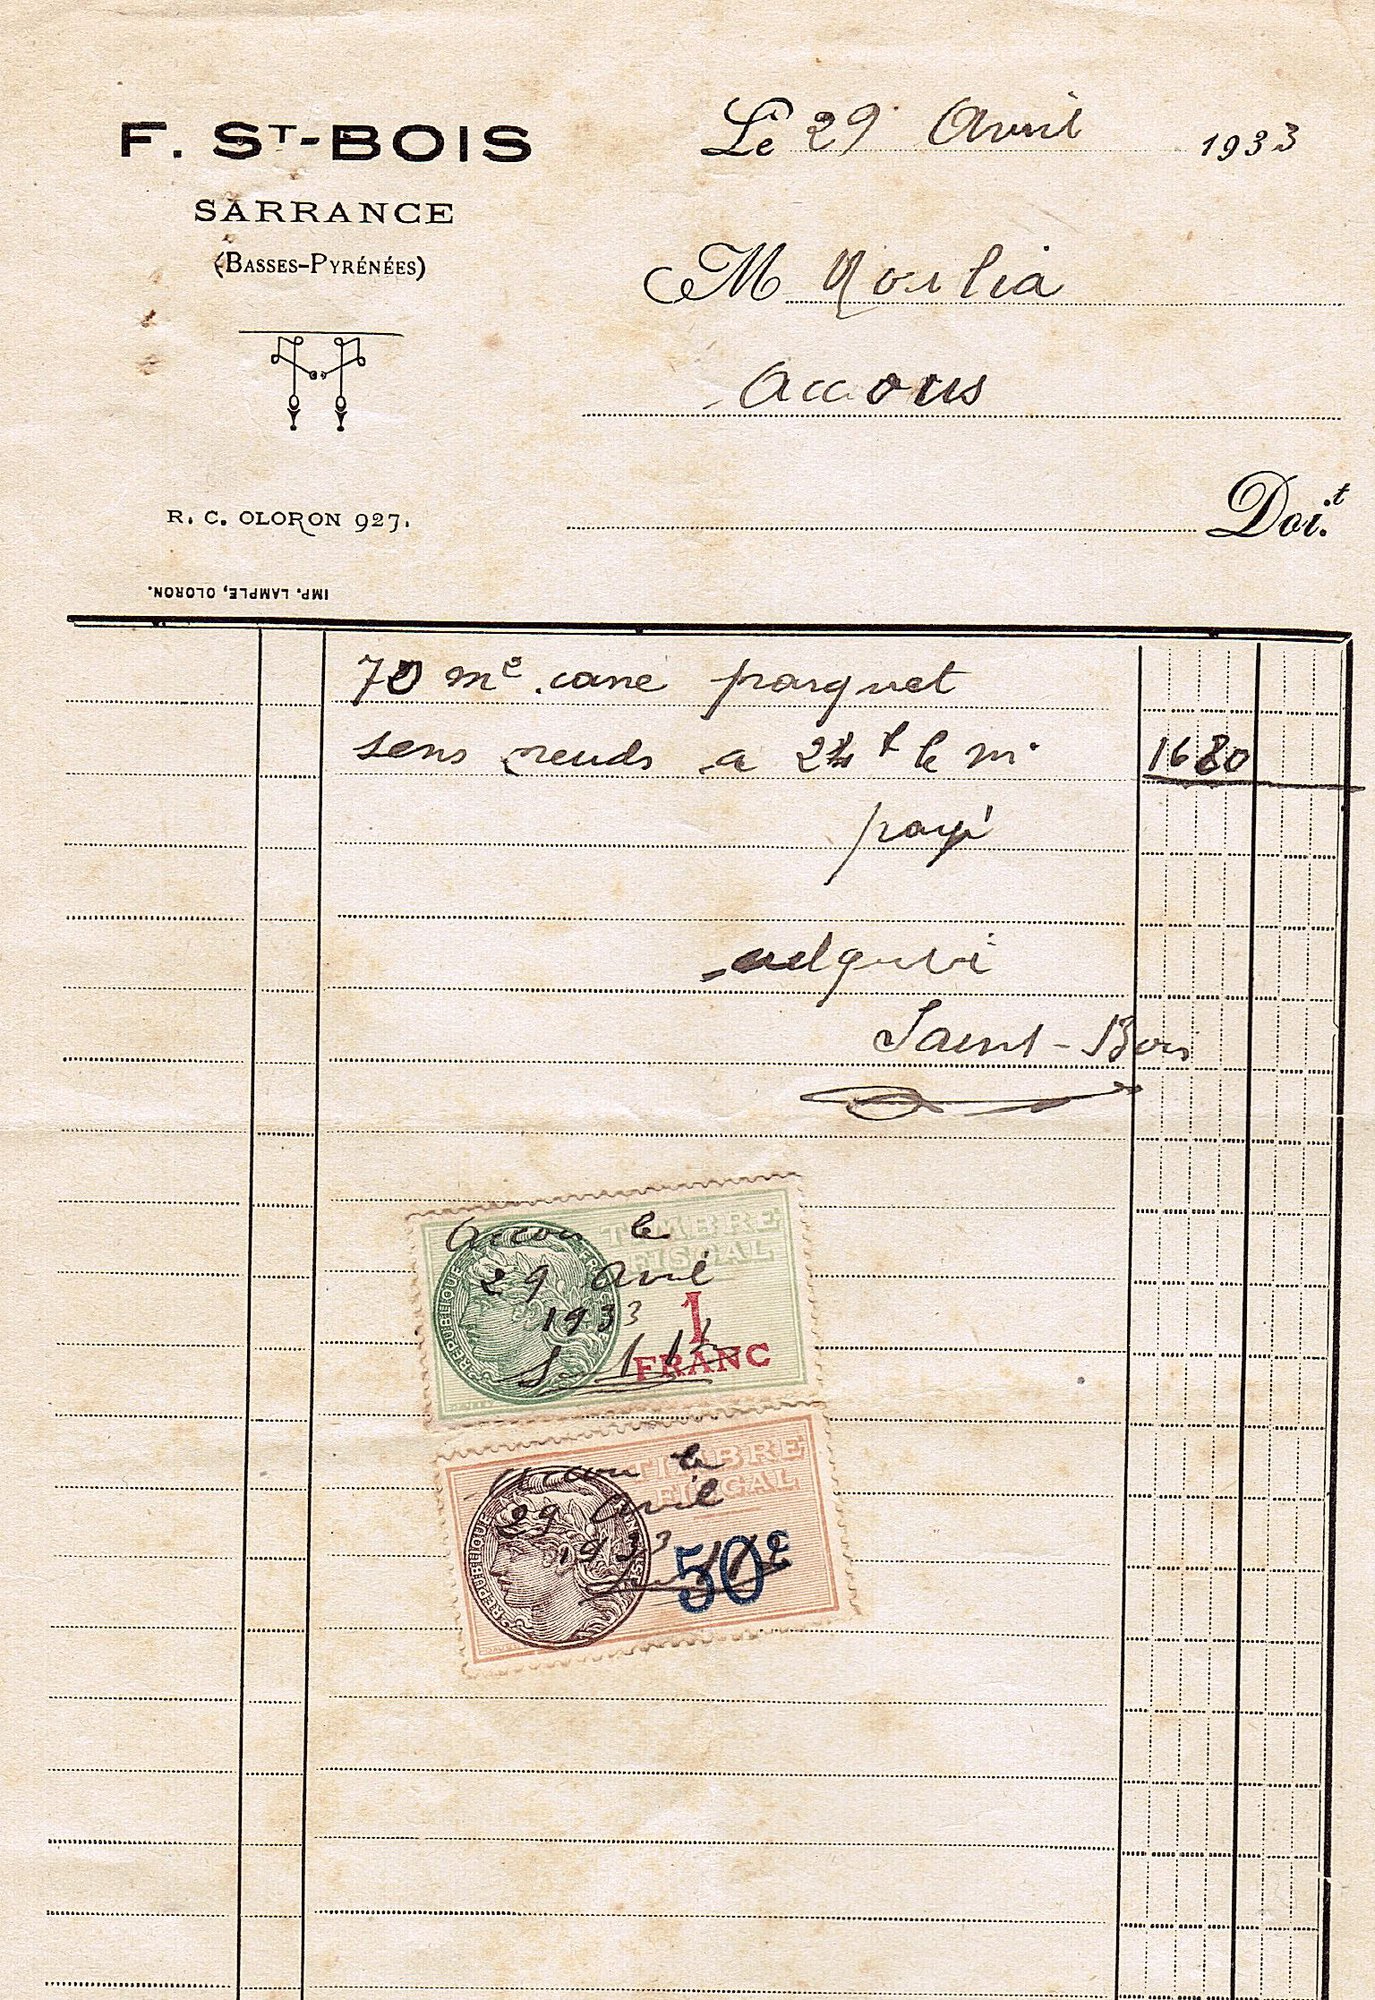 F. ST-BOIS
SARRANCE
(BASSES-PYRÉNÉES)
R. C. OLORON 927.
IMP. LAMPLE, OLORON.
Le 29 Avril 1933
M
Accous
Doit
70 me carré parquet
sens neuds a 24 f le m 1680
payé
Saint-Bois
TIMBRE
FISCAL
Accous le
29 Avril
1933
1
FRANC
REPUBLIQUE FRANCAISE
TIMBRE
FISCAL
Accous le
29 Avril
1933
50c
REPUBLIQUE FRANCAISE